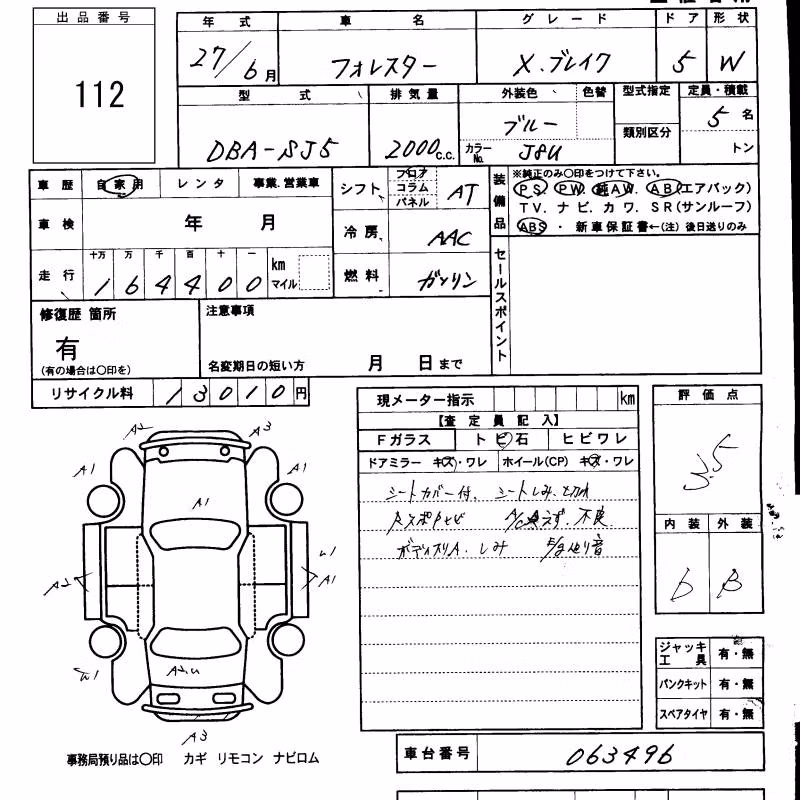 出品番号
112
年式 車名 グレード ドア 形状
27/6月 フォレスター X.ブレイク 5 W
型式 排気量 外装色 色替 型式指定 定員・積載
DBA-SJ5 2000c.c. ブルー 類別区分 5名
カラーNo. J8U トン
車歴 自家用 レンタ 事業.営業車 シフト フロア コラム パネル AT
装備品 ※純正のみ〇印をつけて下さい。
PS PW. 純AW. AB(エアバック)
TV. ナビ. カワ. SR(サンルーフ)
ABS ・ 新車保証書←(注) 後日送りのみ
車検 年 月 冷房 AAC
走行 十万 万 千 百 十 一 km マイル
164400
燃料 ガソリン
セールスポイント
修復歴 箇所 注意事項
有
(有の場合は〇印を) 名変期日の短い方 月 日まで
リサイクル料 13010円
現メーター指示 km
【査定員記入】
Fガラス トビ石 ヒビワレ
ドアミラー キズ・ワレ ホイール(CP) キズ・ワレ
シートカバー付、シートしみ、
不良
しみ 音
評価点
3.5
内装 外装
b B
A2 A3
A1 A1
A1
A2 A1
A2.u
A3
ジャッキ工具 有・無
パンクキット 有・無
スペアタイヤ 有・無
車台番号 063496
事務局預り品は〇印 カギ リモコン ナビロム